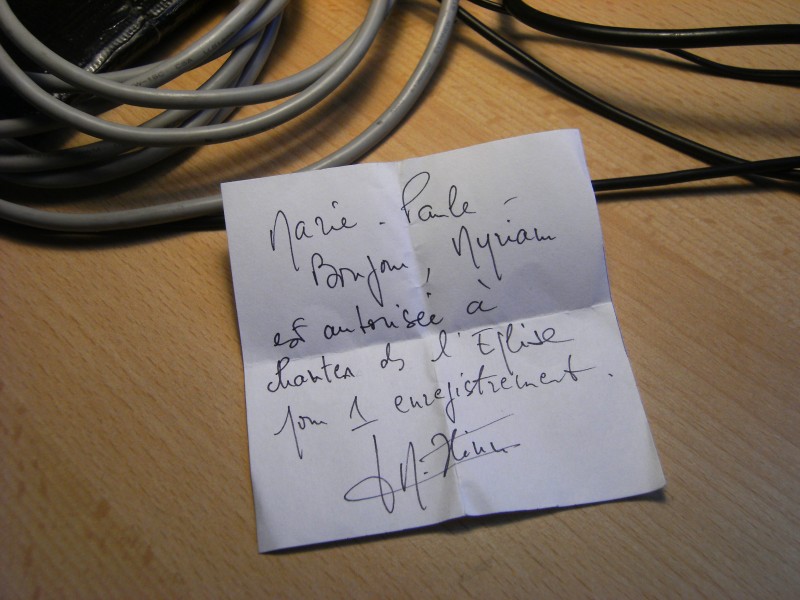 Marie-Paule -
Bonjour, Myriam
est autorisée à
chanter ds l'Eglise
pour 1 enregistrement.